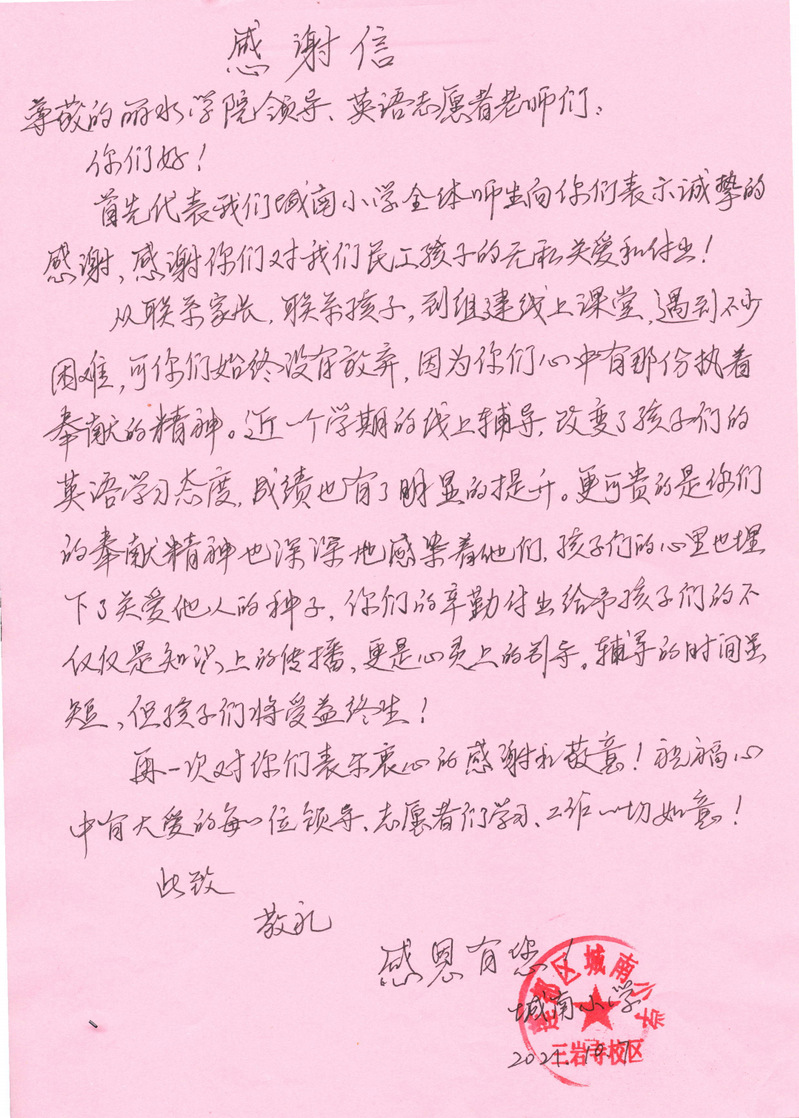 感谢信
尊敬的丽水学院领导、英语志愿者老师们：
你们好！
首先代表我们城南小学全体师生向你们表示诚挚的
感谢，感谢你们对我们民工孩子的无私关爱和付出！
从联系家长，联系孩子，到组建线上课堂，遇到不少
困难，可你们始终没有放弃，因为你们心中有那份执着
奉献的精神。近一个学期的线上辅导，改变了孩子们的
英语学习态度，成绩也有了明显的提升。更可贵的是你们
的奉献精神也深深地感染着他们，孩子们的心里也埋
下了关爱他人的种子，你们的辛勤付出给予孩子们的不
仅仅是知识上的传播，更是心灵上的引导。辅导的时间虽
短，但孩子们将受益终生！
再一次对你们表示衷心的感谢和敬意！祝福心
中有大爱的每一位领导、志愿者们学习、工作一切如意！
此致
敬礼
感恩有您！
城南小学
2021.
莲都区城南小学
三岩寺校区